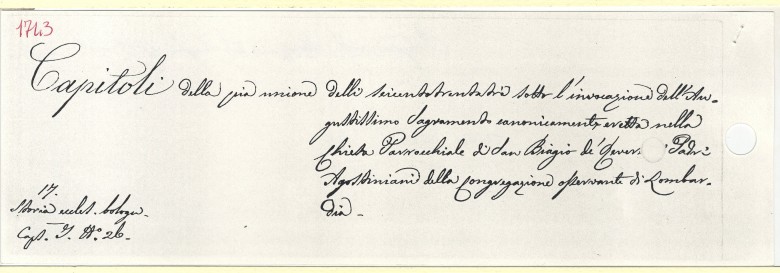 1743
Capitoli della pia unione delli seicentotrentatrè sotto l'invocazione dell'Au-
gustissimo Sagramento canonicamente eretta nella
Chiesa Parrocchiale di San Biagio de' Padri
Agostiniani della Congregazione osservante di Lombar-
dia.
17.
Storia eccles. bologn.
Caps. I. N.° 26.